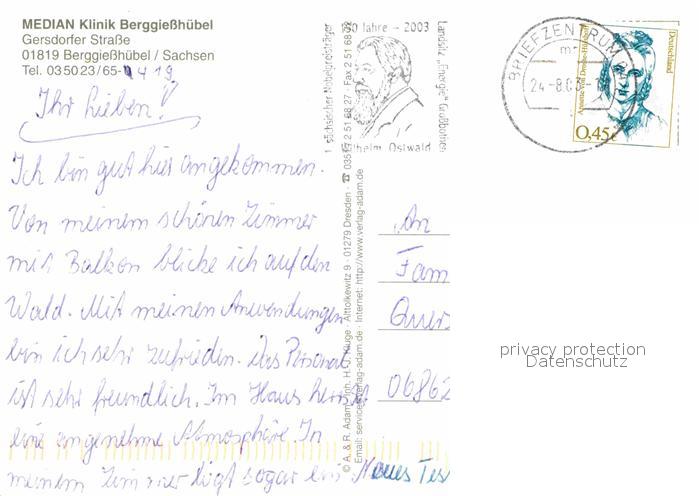 MEDIAN Klinik Berggießhübel
Gersdorfer Straße
01819 Berggießhübel / Sachsen
Tel. 035023/65-1419
Ihr Lieben!
Ich bin gut hier angekommen.
Von meinem schönen Zimmer
mit Balkon blicke ich auf den
Wald. Mit meinen Anwendungen
bin ich sehr zufrieden. Das Personal
ist sehr freundlich. Im Haus herrscht
eine angenehme Atmosphäre. In
meinem Zimmer liegt sogar ein Neues Tes
© A. & R. Adam, Inh. H.-J. Kluge · Alttolkewitz 9 · 01279 Dresden ·
Email: service@verlag-adam.de · Internet: http://www.verlag-adam.de
1. sächsischer Nobelpreisträger
0 Jahre – 2003
Wilhelm Ostwald
Landsitz „Energie“ Großbothen
BRIEFZENTRUM
24-8.03
Annette von Droste-Hülshoff
Deutschland
0,45€
An
Fam
Quer
06862
privacy protection
Datenschutz